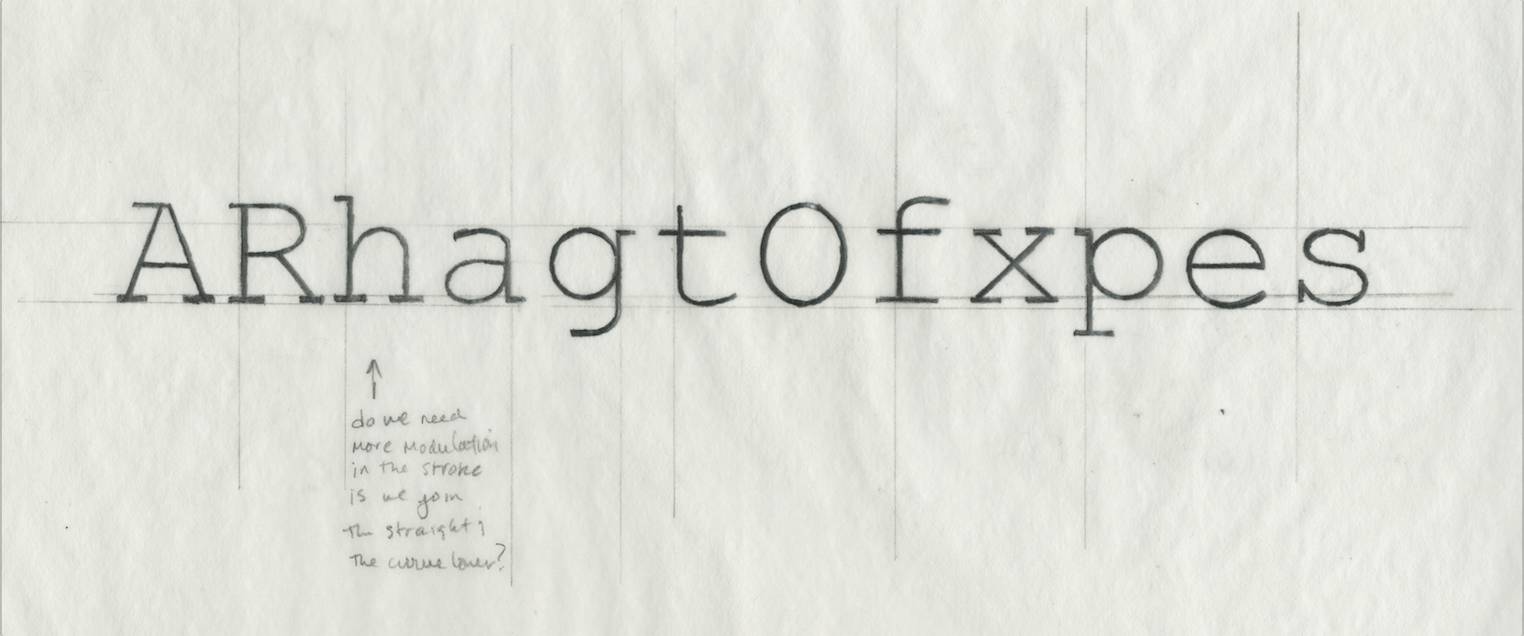 ARhagtOfxpes
do we need
more modulation
in the stroke
is we join
the straight &
the curve lower?